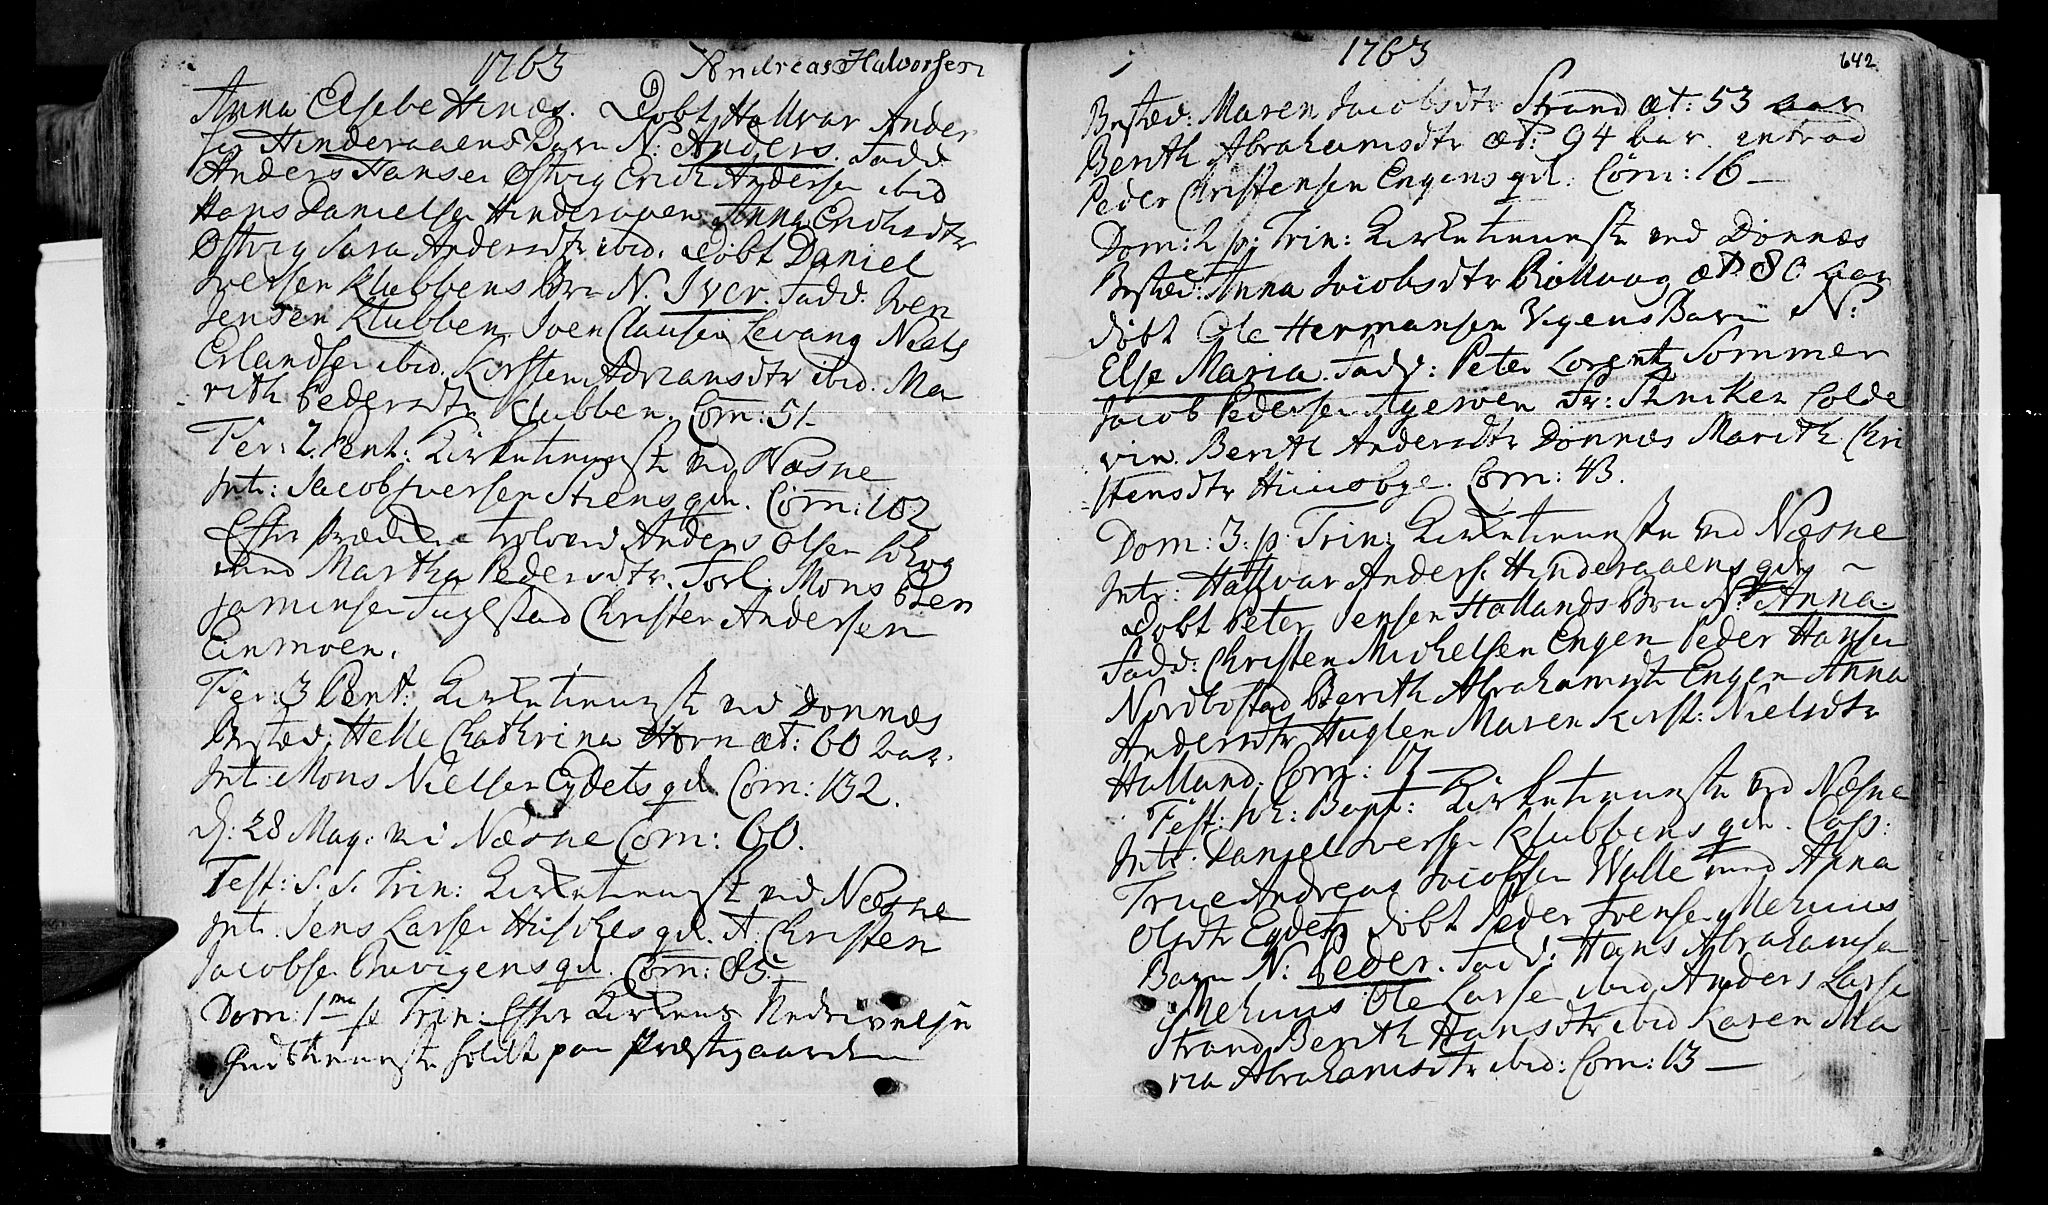 1763 Andreas Halvorsen
Anna Elsebe Hines. Döbt Hallvar Ander
sen Hinderaaens Barn N: Anders. Fadd
Anders Hansen Østvig Erich Andersen ibid
Hans Danielsen Hinderaaen Anna Erichsdtr
Østvig Sara Andersdtr ibid. Döbt Daniel
Iversen Klubbens Brn N. Iver. Fadd. Iven
Jensen Klubben Iven Clausen Levang Niels
Erlandsen ibid. Kirsten Adriansdtr ibid. Ma
rith Pedersdtr Klubben. Com: 51
Fer: 2. Pent: Kirketieneste ved Næsne
Int: Jacob Iversen Stiens qd. Com: 102
Efter Prædiken trolovet Anders Olsen
med Martha Pedersdtr. Forl: Mons Ben
jaminsen Fuglstad Christen Andersen
Einmoen.
Fer: 3 Pent: Kirketieneste ved Dönnæs
Bested: Helle Cathrina Horn æt: 60 aar.
Int: Mons Nielsen Eydets qd. Com: 132.
D: 28 May: ved Næsne Com: 60.
Fest: S. S. Trin: Kirketieneste ved Næsne
Int: Jens Larsen Husbyes qd. A. Christen
Jacobsen qd. Com: 85.
Dom: 1me p Trin: Efter Kirkens Nedrivelse
Gudstieneste holdt paa Præstegaarden
1763 642
Bested: Maren Jacobsdtr Strand æt: 53 aar
Berith Abrahamsdtr æt: 94 aar. introd
Peder Christensen Engens qd. Com: 16 —
Dom: 2 p: Trin: Kirketieneste ved Dönnæs
Bested: Anna Jacobsdtr Biellvaag æt. 80 aar
döbt Ole Hermansen Vigens Barn N:
Else Maria. Fadd: Peter Lorentz Sommer
Jacob Pedersen Agerøen Fr: Anniken Colde
vin. Berith Andersdtr Dönnæs Marith Chri
stensdtr Huusbye. Com: 43.
Dom: 3. p. Trin: Kirketieneste ved Næsne
Int: Hallvar Anders. Hinderaaens qd.
Döbt Peter Jensen Hallands Brn N: Anna.
Fadd: Christen Michelsen Engen Peder Hansen
Nordbostad Berith Abrahamsdtr Engen Anna
Andersdtr Huglen Maren Kirst: Nielsdtr
Halland. Com: 17 —
Fest: Joh: Bapt: Kirketieneste ved Næsne
Int: Daniel Iversen Klubbens qd. Cop:
True Andreas Jacobsen Walle med Anna
Olsdtr Eydet döbt Peder Ivensen Mehuus
Barn N: Peder. Fadd: Hans Abrahamsen
Mehuus Ole Larsen ibid Anders Larsen
Strand Berith Hansdtr ibid Karen Ma
ria Abrahamsdtr ibid: Com: 13 —